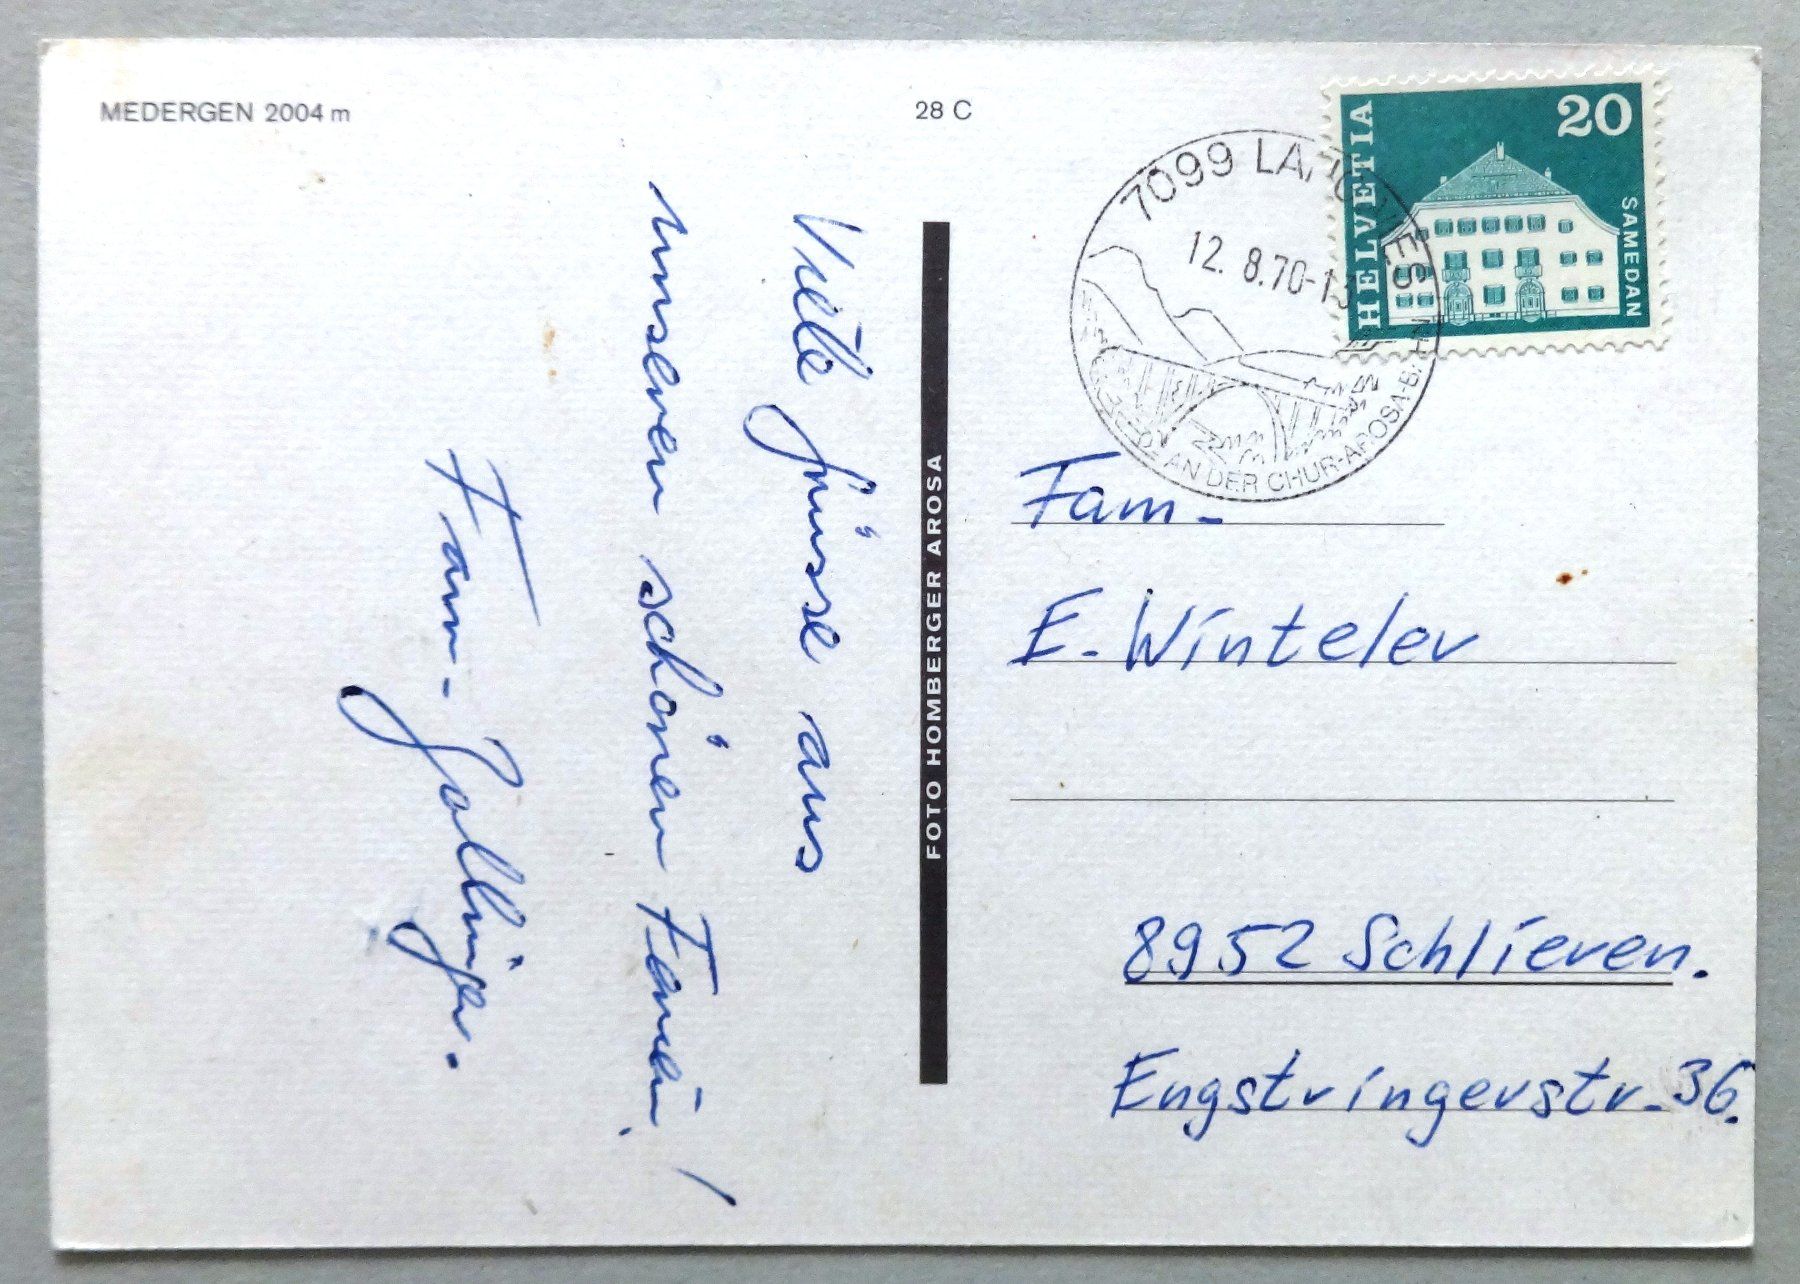 MEDERGEN 2004 m
28 C
HELVETIA
20
SAMEDAN
7099 LANGWIES
12. 8.70-13
AN DER CHUR-AROSA-BAHN
FOTO HOMBERGER AROSA
Viele Grüsse aus
unseren schönen Ferien!
Fam-
Fam-
E. Winteler
8952 Schlieren.
Engstringerstr. 36.